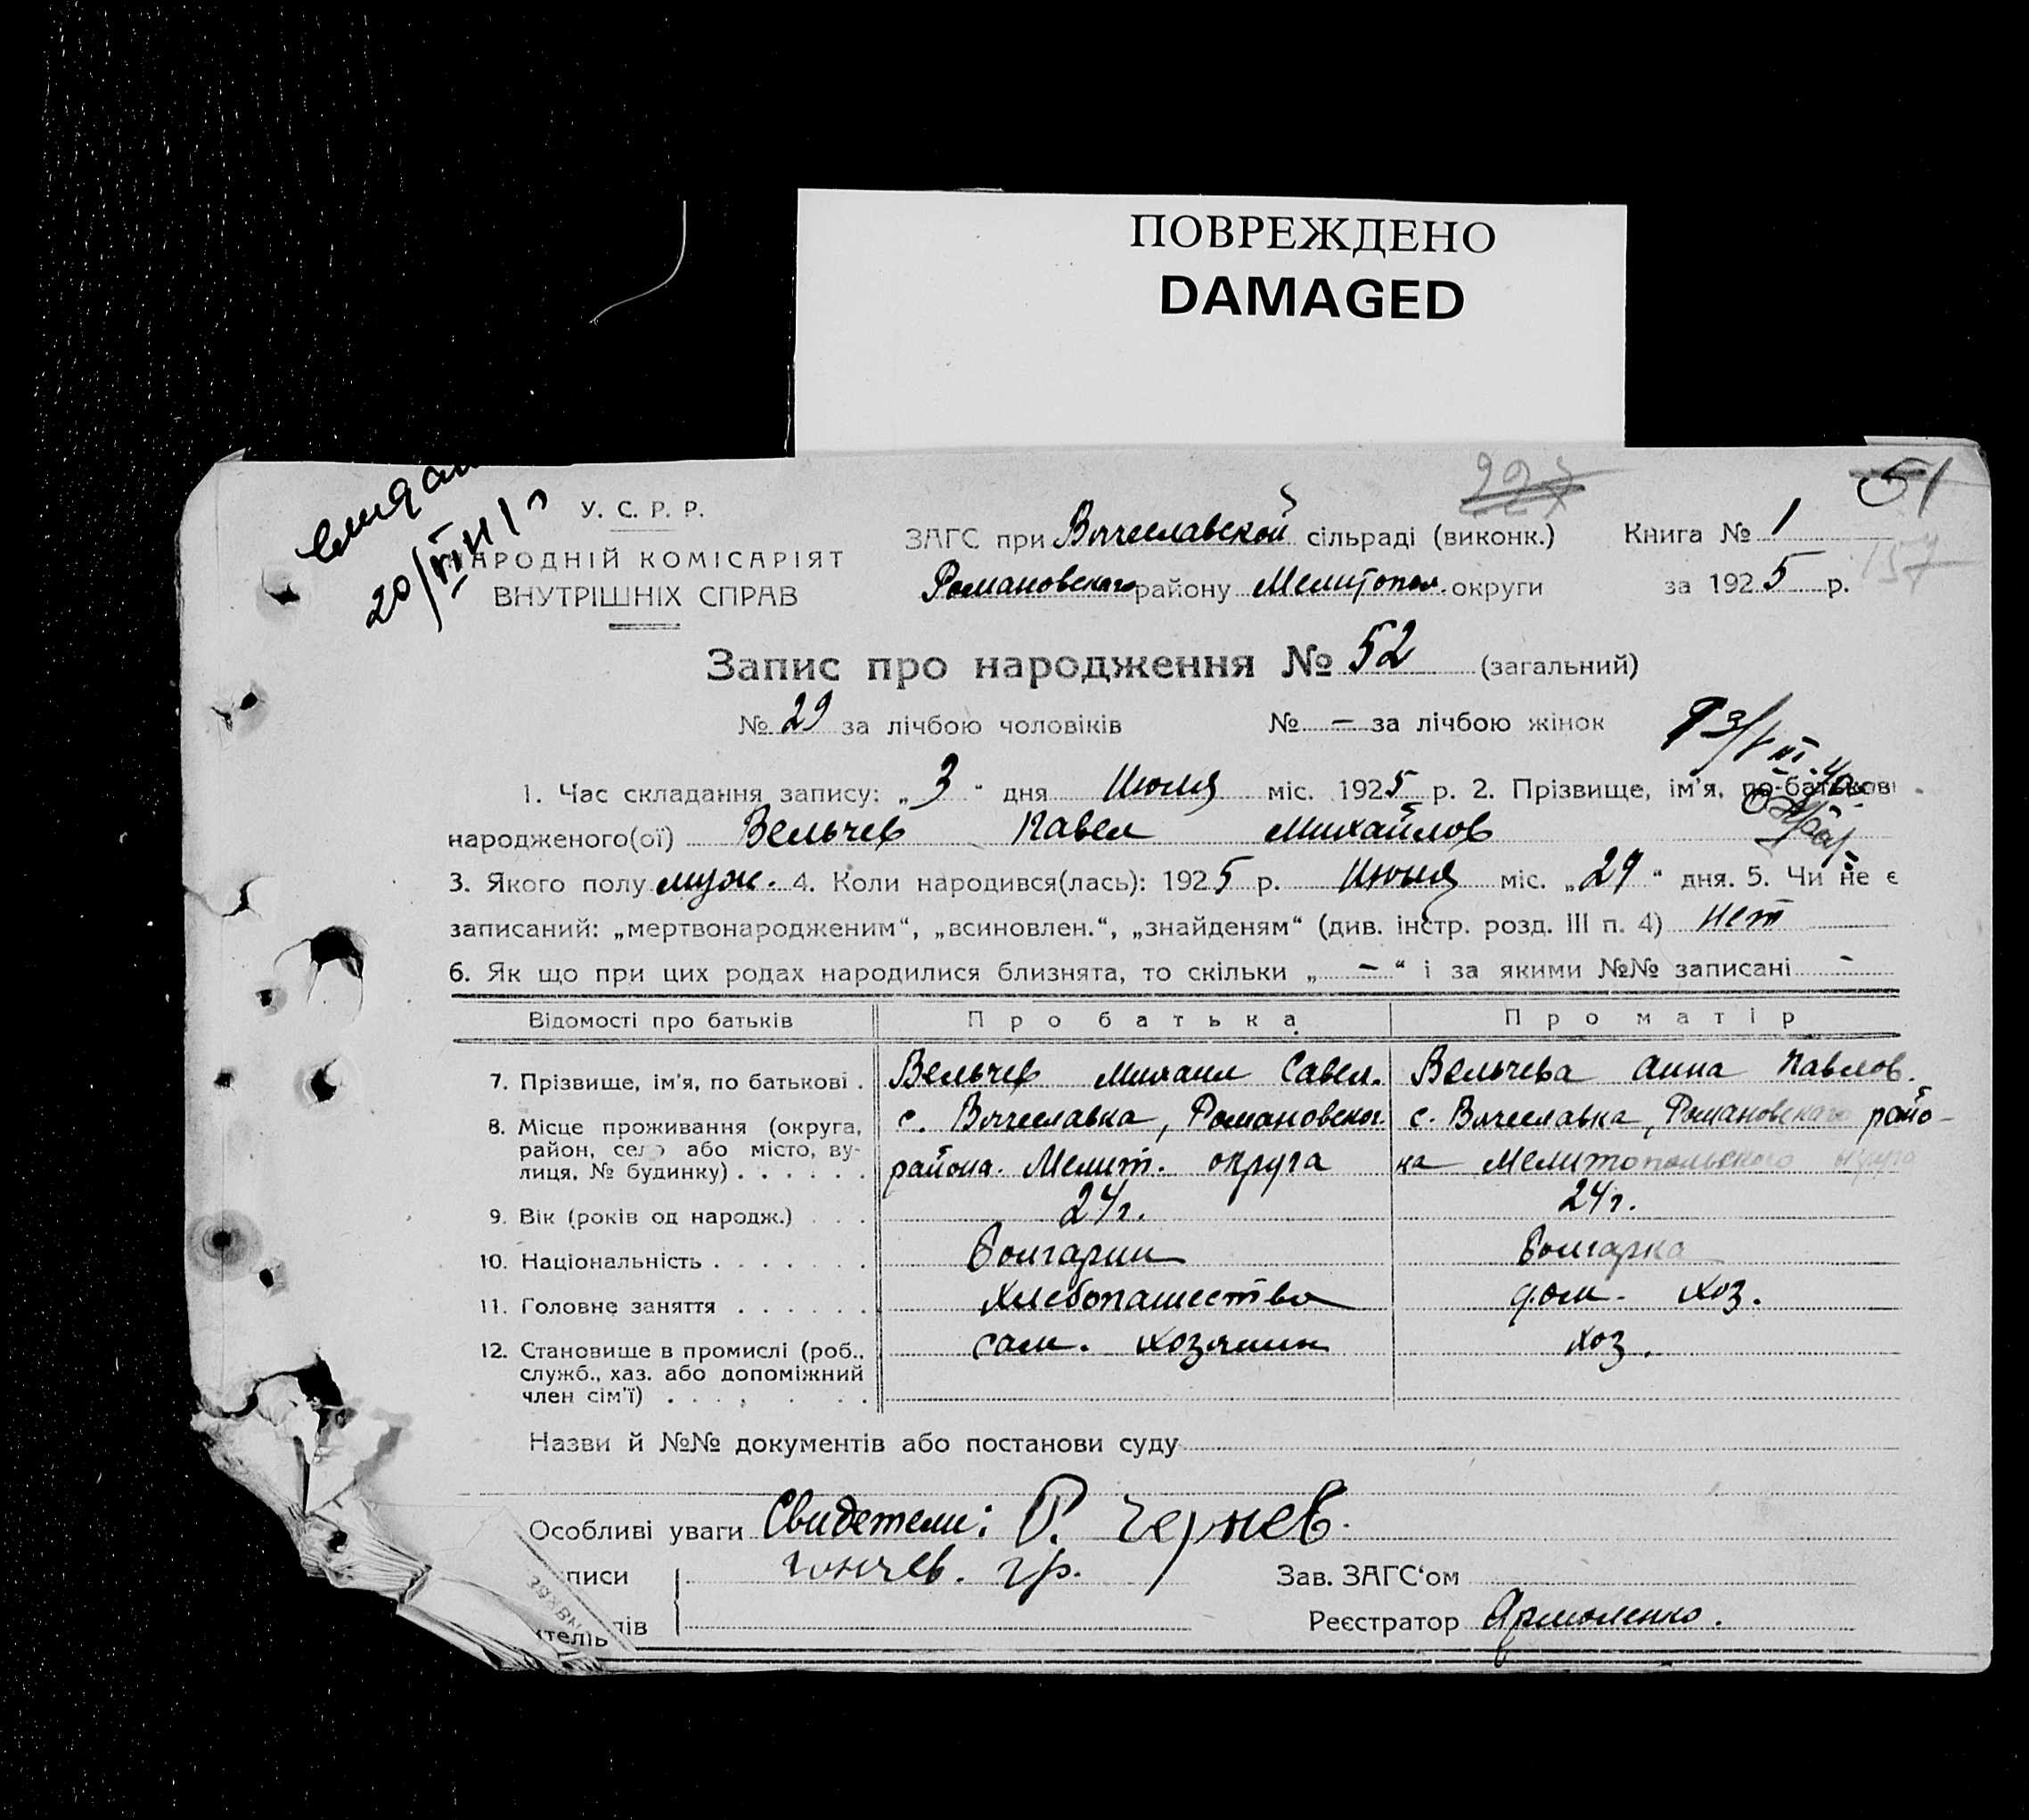 ПОВРЕЖДЕНО
DAMAGED
227
51
20/III 41
У. С. Р. Р.
НАРОДНІЙ КОМІСАРІЯТ
ВНУТРІШНІХ СПРАВ
ЗАГС при Вячеславской сільраді (виконк.) Книга № 1
Романовского району Мелитопол. округи за 1925 р. 157
Запис про народження № 52 (загальний)
№ 29 за лічбою чоловіків № — за лічбою жінок
1. Час складання запису: „3“ дня Июля міс. 1925 р. 2. Прізвище, ім’я, по-батькові
народженого(ої) Вельчев Павел Михайлов
3. Якого полу муж. 4. Коли народився(лась): 1925 р. Июня міс. „29“ дня. 5. Чи не є
записаний: „мертвонародженим“, „всиновлен.“, „знайденям“ (див. інстр. розд. III п. 4) нет
6. Як що при цих родах народилися близнята, то скільки „—“ і за якими №№ записані -
Відомості про батьків Про батька Про матір
7. Прізвище, ім’я, по батькові . Вельчев Михаил Савел. Вельчева Анна Павлов.
8. Місце проживання (округа, район, село або місто, вулиця, № будинку) . . . . . . с. Вячеславка, Романовског. района. Мелит. округа с. Вячеславка, Романовского райо-на Мелитопольского округа
9. Вік (років од народж.) . . . 24 г. 24 г.
10. Національність . . . . . . . Болгарин Болгарка
11. Головне заняття . . . . . . Хлебопашество дом. хоз.
12. Становище в промислі (роб., служб., хаз. або допоміжний член сім’ї) . . . . . . сам. хозяин хоз.
Назви й №№ документів або постанови суду
Особливі уваги Свидетели: Р. Чернев.
писи гр. Зав. ЗАГС‘ом
ів Реєстратор Ярмоленко.
ителів